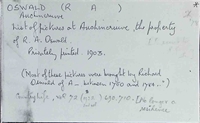 OSWALD (R A)
Auchincruive
List of pictures at Auchincruive, the property
of R. A. Oswald.
Privately printed 1903.
(Most of these pictures were bought by Richard
Oswald of A— between 1750 and 1784 —")